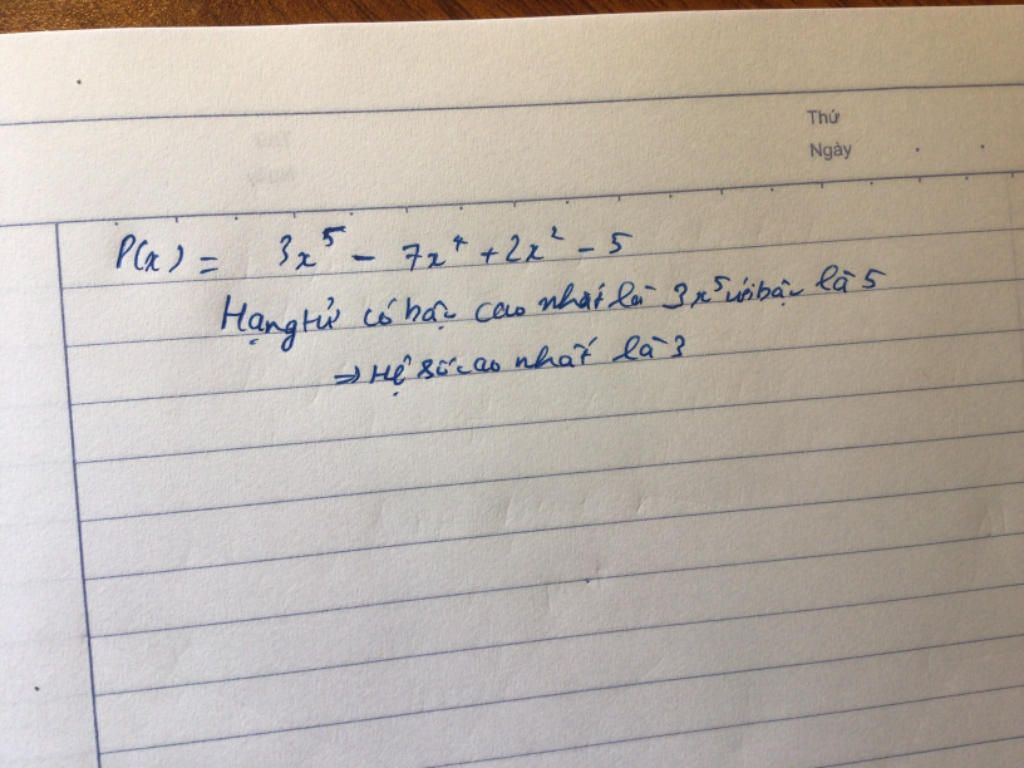 Thứ
Ngày
P(x) = 3x⁵ - 7x⁴ + 2x² - 5
Hạng tử có bậc cao nhất là 3x⁵ với bậc là 5
⇒ Hệ số cao nhất là 3